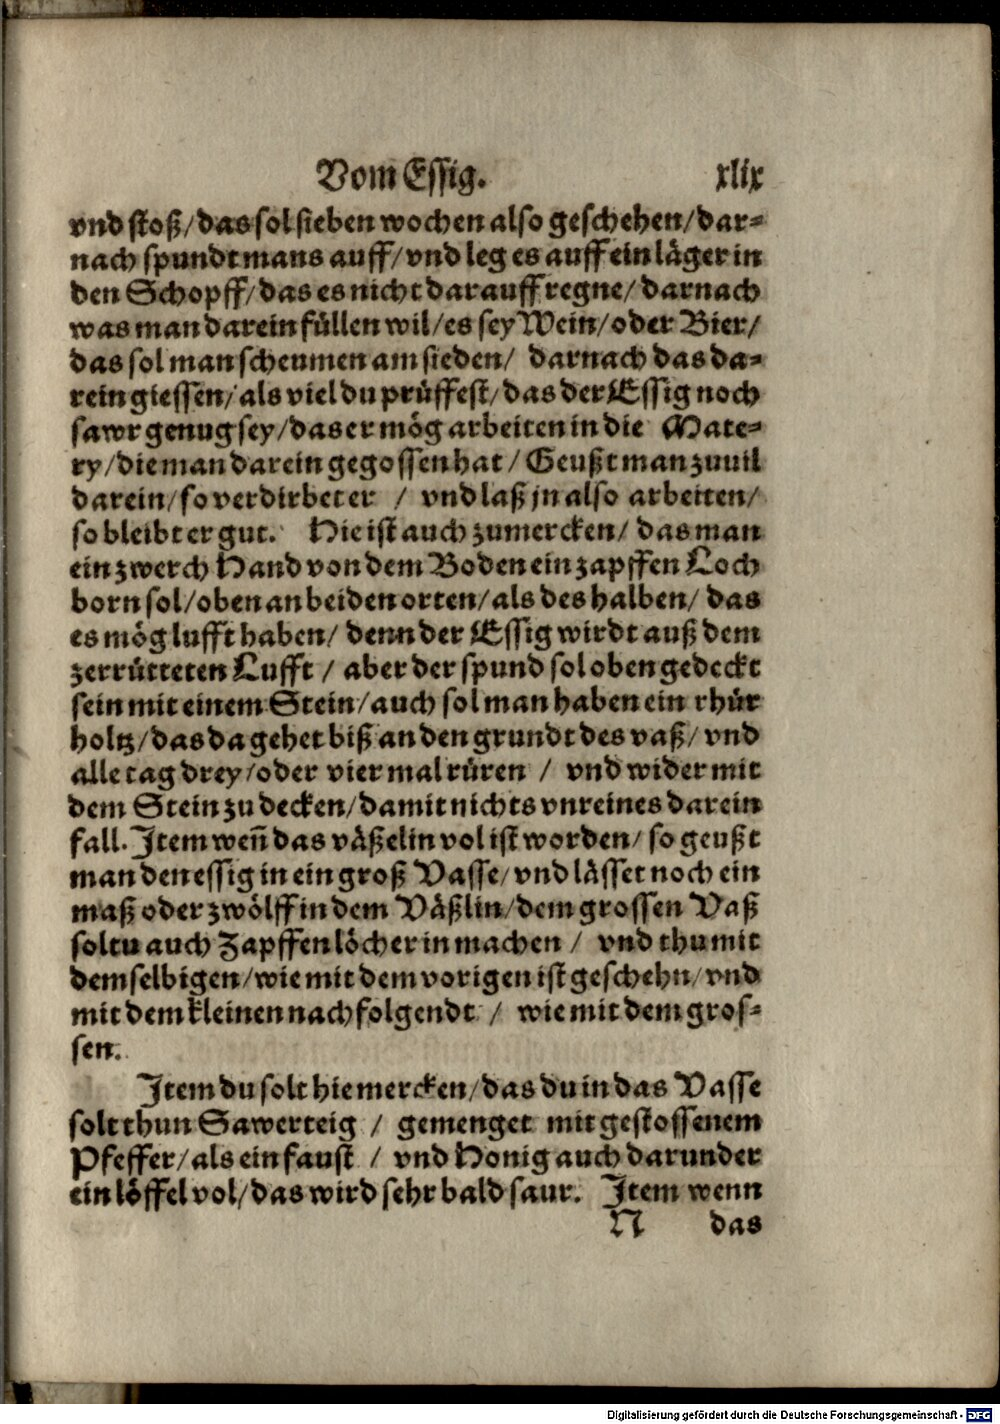 Vom Essig. xlix
vnd stoß/das sol sieben wochen also geschehen/dar⸗
nach spundt mans auff/vnd leg es auff ein läger in
den Schopff/das es nicht darauff regne/darnach
was man darein füllen wil/es sey Wein/oder Bier/
das sol man scheumen am sieden/ darnach das da⸗
rein giessen/als viel du prüffest/das der Essig noch
sawr genug sey/das er mög arbeiten in die Mate⸗
ry/die man darein gegossen hat / Geußt man zuuil
darein/so verdirbet er / vnd laß jn also arbeiten/
so bleibt er gut. Hie ist auch zumercken/ das man
ein zwerch Hand von dem Boden ein zapffen Loch
born sol/oben an beiden orten/als deshalben/ das
es mög lufft haben/ denn der Essig wirdt auß dem
zerrütteten Lufft / aber der spund sol oben gedeckt
sein mit einem Stein/auch sol man haben ein rhür
holtz/das da gehet biß an den grundt des vaß/ vnd
alle tag drey/oder vier mal rüren / vnd wider mit
dem Stein zu decken/damit nichts vnreines darein
fall. Item weñ das väßelin vol ist worden/ so geußt
man den essig in ein groß Vasse/vnd lässet noch ein
maß oder zwölff in dem Väßlin/dem grossen Vaß
soltu auch Zapffenlöcher in machen / vnd thu mit
demselbigen/wie mit dem vorigen ist geschehn/vnd
mit dem kleinen nachfolgendt / wie mit dem gros⸗
sen.
Item du solt hie mercken/das du in das Vasse
solt thun Sawerteig / gemenget mit gestossenem
Pfeffer/als ein faust / vnd Honig auch darunder
ein löffel vol/das wird sehr bald saur. Item wenn
N das
Digitalisierung gefördert durch die Deutsche Forschungsgemeinschaft - DFG